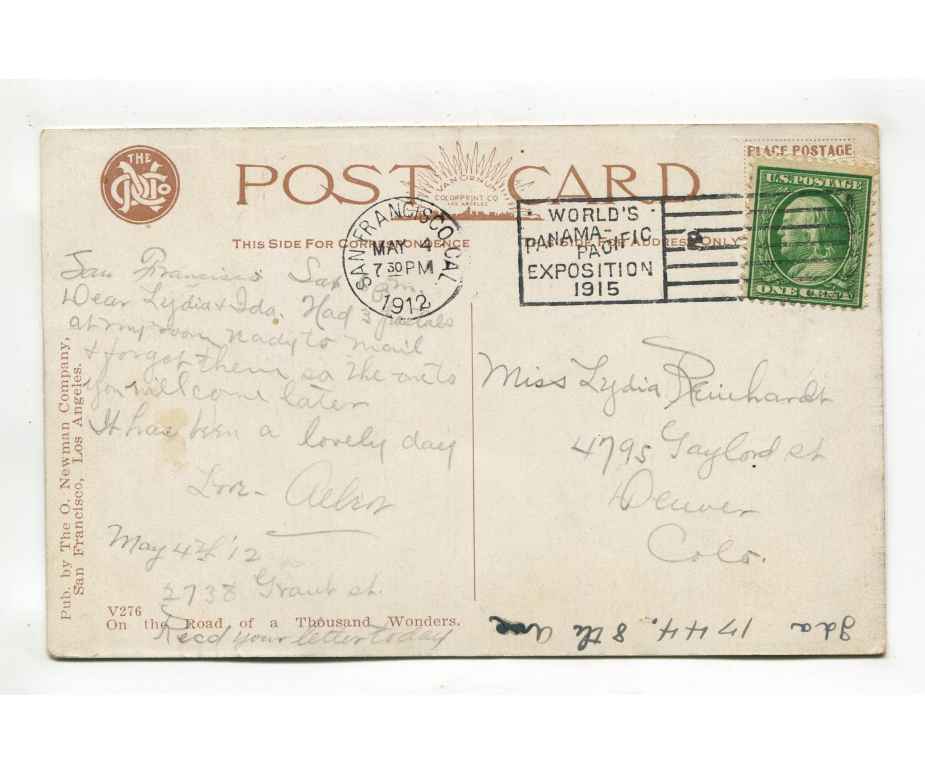 THE
ONCo
POST CARD
VAN ORNUM
COLORPRINT CO
LOS ANGELES
PLACE POSTAGE
THIS SIDE FOR CORRESPONDENCE
THIS SIDE FOR ADDRESS ONLY
SAN FRANCISCO, CAL.
MAY 4
7 30 PM
1912
WORLD'S
PANAMA-
PACIFIC
EXPOSITION
1915
U.S. POSTAGE
ONE CENT
San Francisco Sat
Dear Lydia & Ida. Had 3
at my room ready to mail
& forgot them so the
you will come later
It has been a lovely day
Love-
May 4th '12
2738 Grant st.
Recd your letter today
Miss Lydia Reinhardt
4795 Gaylord st
Denver
Colo.
Ida
1744. 8th Ave
Pub. by The O. Newman Company,
San Francisco, Los Angeles.
V276
On the Road of a Thousand Wonders.